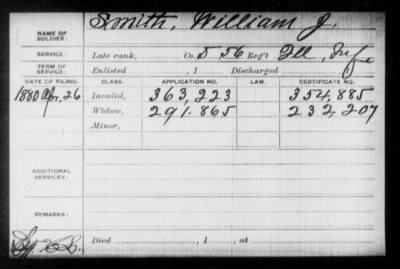 NAME OF SOLDIER: Smith, William J.
SERVICE: Late rank, Co. 56 Reg't Ill. Inf.
TERM OF SERVICE: Enlisted , 1 Discharged
DATE OF FILING. CLASS. APPLICATION NO. LAW. CERTIFICATE NO.
1880 Apr. 26 Invalid, 363,223 354,885
Widow, 291.865 232,207
Minor,
ADDITIONAL SERVICES:
REMARKS:
Died , 1 , at